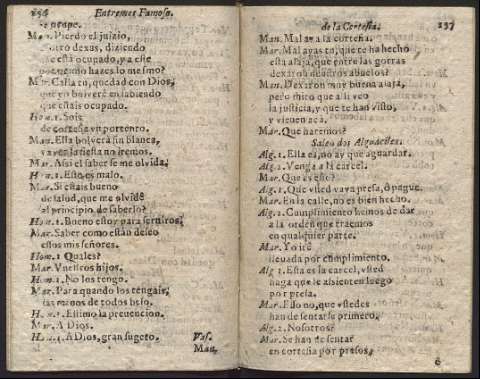 236 Entremes Famoso.
te ocupe.
Man. Pierdo el juizio,
otro dexus, diziendo
està ocupado, ya esse
no hazes lo mesmo?
Man. Calla tu, quedad con Dios,
que yo bolverè en sabiendo
que estais ocupado.
Hom. 1. Sois
de cortesia vn portento.
Man. Ella bolverà sin blanca,
ya en la fiesta no iremos.
Mar. Assi el saber se me olvida,
Hom. 1. Esso es malo.
Mar. Si estais bueno
de salud, que me olvidè
al principio de saberlo?
Hom. 1. Bueno estoy para serviros,
Mar. Saber como estàn deseo
essos mis señores.
Hom. 1 Quales?
Mar. Vuestros hijos.
Hom. 1. No los tengo.
Mar. Para quando los tengais,
las manos de todos beso.
Hom. 1. Estimo la prevencion.
Mar. A Dios.
Hom. 1. A Dios, gran sugeto. Vas.
Man.
de la Cortesia. 237
Man. Mal aya la cortesia.
Mar. Mal ayas tu, que te ha hecho
esta alaja, que entre las gorras
dexaron nuestros abuelos?
Man. Dexaron muy buena alaja,
pero mito que alli veo
la justicia, y que te han visto,
y vienen acà.
Mar. Que haremos?
Salen dos Alguaciles.
Alg. 1. Ella es, no ay que aguardar.
Alg. 2. Venga a la carcel.
Mar. Que es esso?
Alg. 1. Que vsted vaya presa, ò pague.
Mar. En la calle, no es bien hecho.
Alg. 2. Cumplimiento hemos de dar
a la orden que traemos
en qualquier parte.
Mar. Yo irè
llevada por cumplimiento.
Alg. 1. Esta es la carcel, vsted
haga que le assienten luego
por presa.
Mar. Esso no, que vstedes
han de sentarse primero.
Alg. 2. Nosotros?
Mar. Se han de sentar
en cortesia por presos,